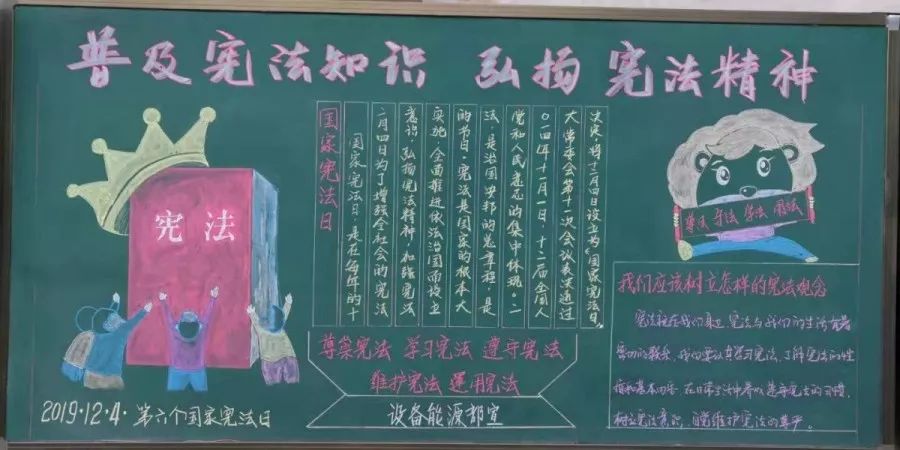 普及宪法知识 弘扬宪法精神
宪法
2019·12·4·第六个国家宪法日
国家宪法日
国家宪法日,是在每年的十
二月四日为了增强全社会的宪法
意识,弘扬宪法精神,加强宪法
实施,全面推进依法治国而设立
的节日。宪法是国家的根本大
法,是治国安邦的总章程,是
党和人民意志的集中体现。二
〇一四年十一月一日,十二届全国人
大常委会第十一次会议表决通过
决定将十二月四日设立为“国家宪法日”。
尊崇宪法 学习宪法 遵守宪法
维护宪法 运用宪法
设备能源部宣
尊法 守法 学法 用法
我们应该树立怎样的宪法观念
宪法就在我们身边,宪法与我们的生活有着
密切的联系,我们要认真学习宪法、了解宪法的性
质和基本内容,在日常生活中养成遵守宪法的习惯,
树立宪法意识,自觉维护宪法的尊严。